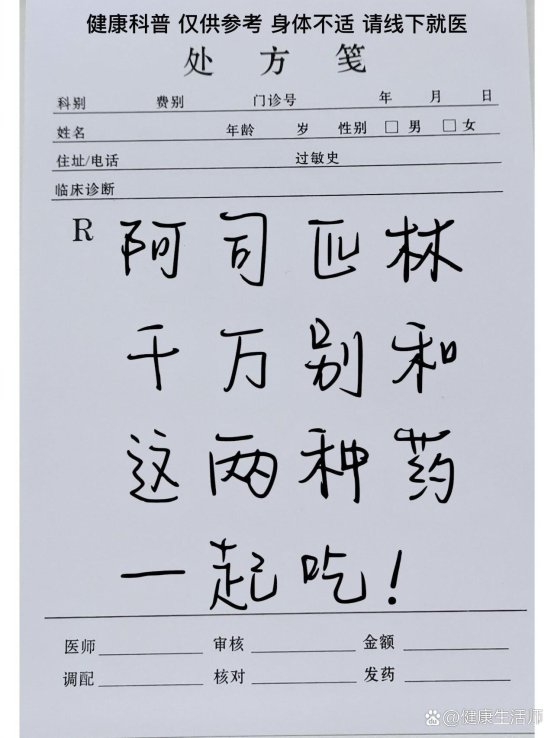 健康科普 仅供参考 身体不适 请线下就医
处方笺
科别 费别 门诊号 年 月 日
姓名 年龄 岁 性别 □ 男 □ 女
住址/电话 过敏史
临床诊断
R 阿司匹林
千万别和
这两种药
一起吃!
医师 审核 金额
调配 核对 发药
@健康生活师